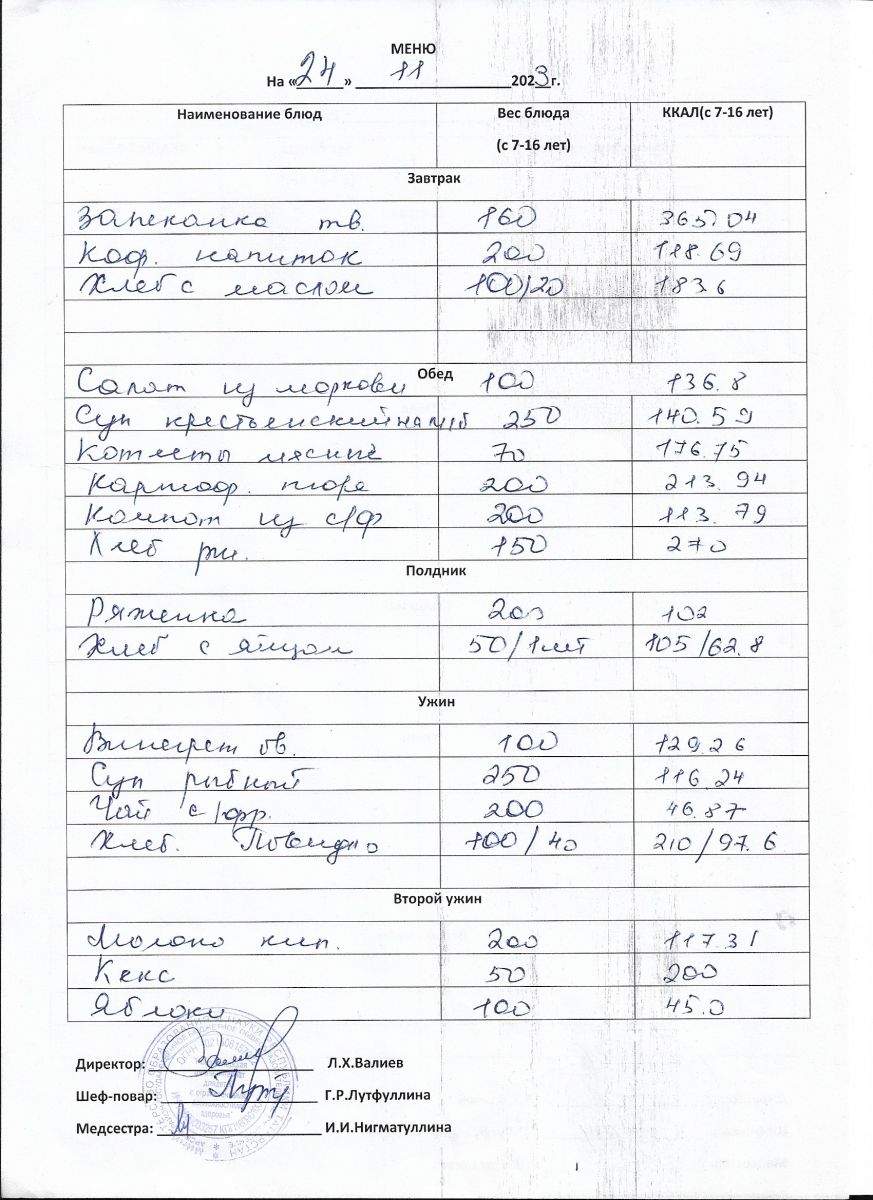 МЕНЮ
На «24» 11 2023г.
Наименование блюд Вес блюда (с 7-16 лет) ККАЛ(с 7-16 лет)
Завтрак
Запеканка тв. 160 365.04
Коф. напиток 200 118.69
Хлеб с маслом 100/20 183.6
Обед
Салат из моркови 100 136.8
Суп крестьенский на м/б 250 140.59
Котлеты мясные 70 176.75
Картоф. пюре 200 213.94
Компот из с/ф 200 113.79
Хлеб рж. 150 270
Полдник
Ряженка 200 102
Хлеб с яйцом 50/1шт 105/62.8
Ужин
Винегрет ов. 100 129.26
Суп рыбный 250 116.24
Чай с/фр. 200 46.87
Хлеб. Повидло 100/40 210/97.6
Второй ужин
Молоко кип. 200 117.31
Кекс 50 200
Яблоки 100 45.0
Директор: Л.Х.Валиев
Шеф-повар: Г.Р.Лутфуллина
Медсестра: И.И.Нигматуллина